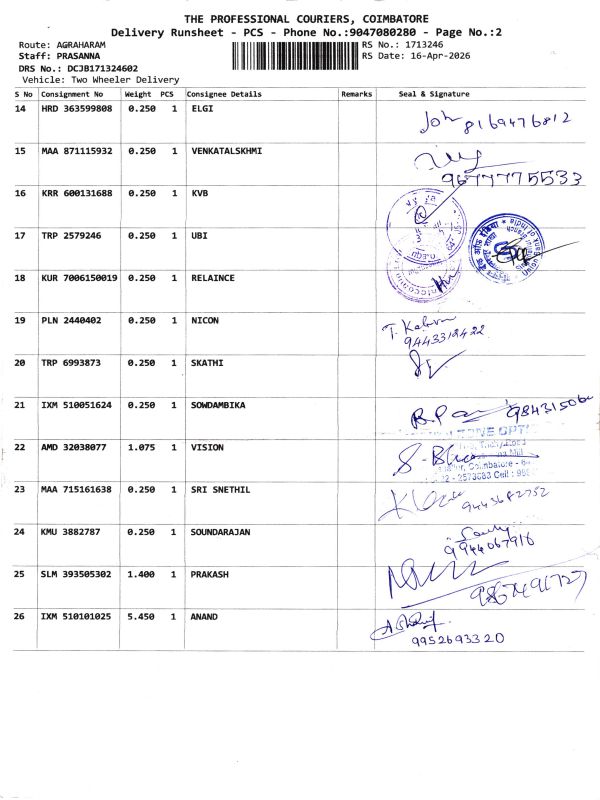 THE PROFESSIONAL COURIERS, COIMBATORE
Delivery Runsheet - PCS - Phone No.:9047080280 - Page No.:2
Route: AGRAHARAM
RS No.: 1713246
Staff: PRASANNA
RS Date: 16-Apr-2026
DRS No.: DCJB171324602
Vehicle: Two Wheeler Delivery
S No Consignment No Weight PCS Consignee Details Remarks Seal & Signature
14 HRD 363599808 0.250 1 ELGI
8169476812
15 MAA 871115932 0.250 1 VENKATALSKHMI
9677775533
16 KRR 600131688 0.250 1 KVB
17 TRP 2579246 0.250 1 UBI
18 KUR 7006150019 0.250 1 RELAINCE
19 PLN 2440402 0.250 1 NICON
9443312422
20 TRP 6993873 0.250 1 SKATHI
21 IXM 510051624 0.250 1 SOWDAMBIKA
22 AMD 32038077 1.075 1 VISION
Trichy Road
Coimbatore
23 MAA 715161638 0.250 1 SRI SNETHIL
9443682752
24 KMU 3882787 0.250 1 SOUNDARAJAN
9944067916
25 SLM 393505302 1.400 1 PRAKASH
26 IXM 510101025 5.450 1 ANAND
9952693320